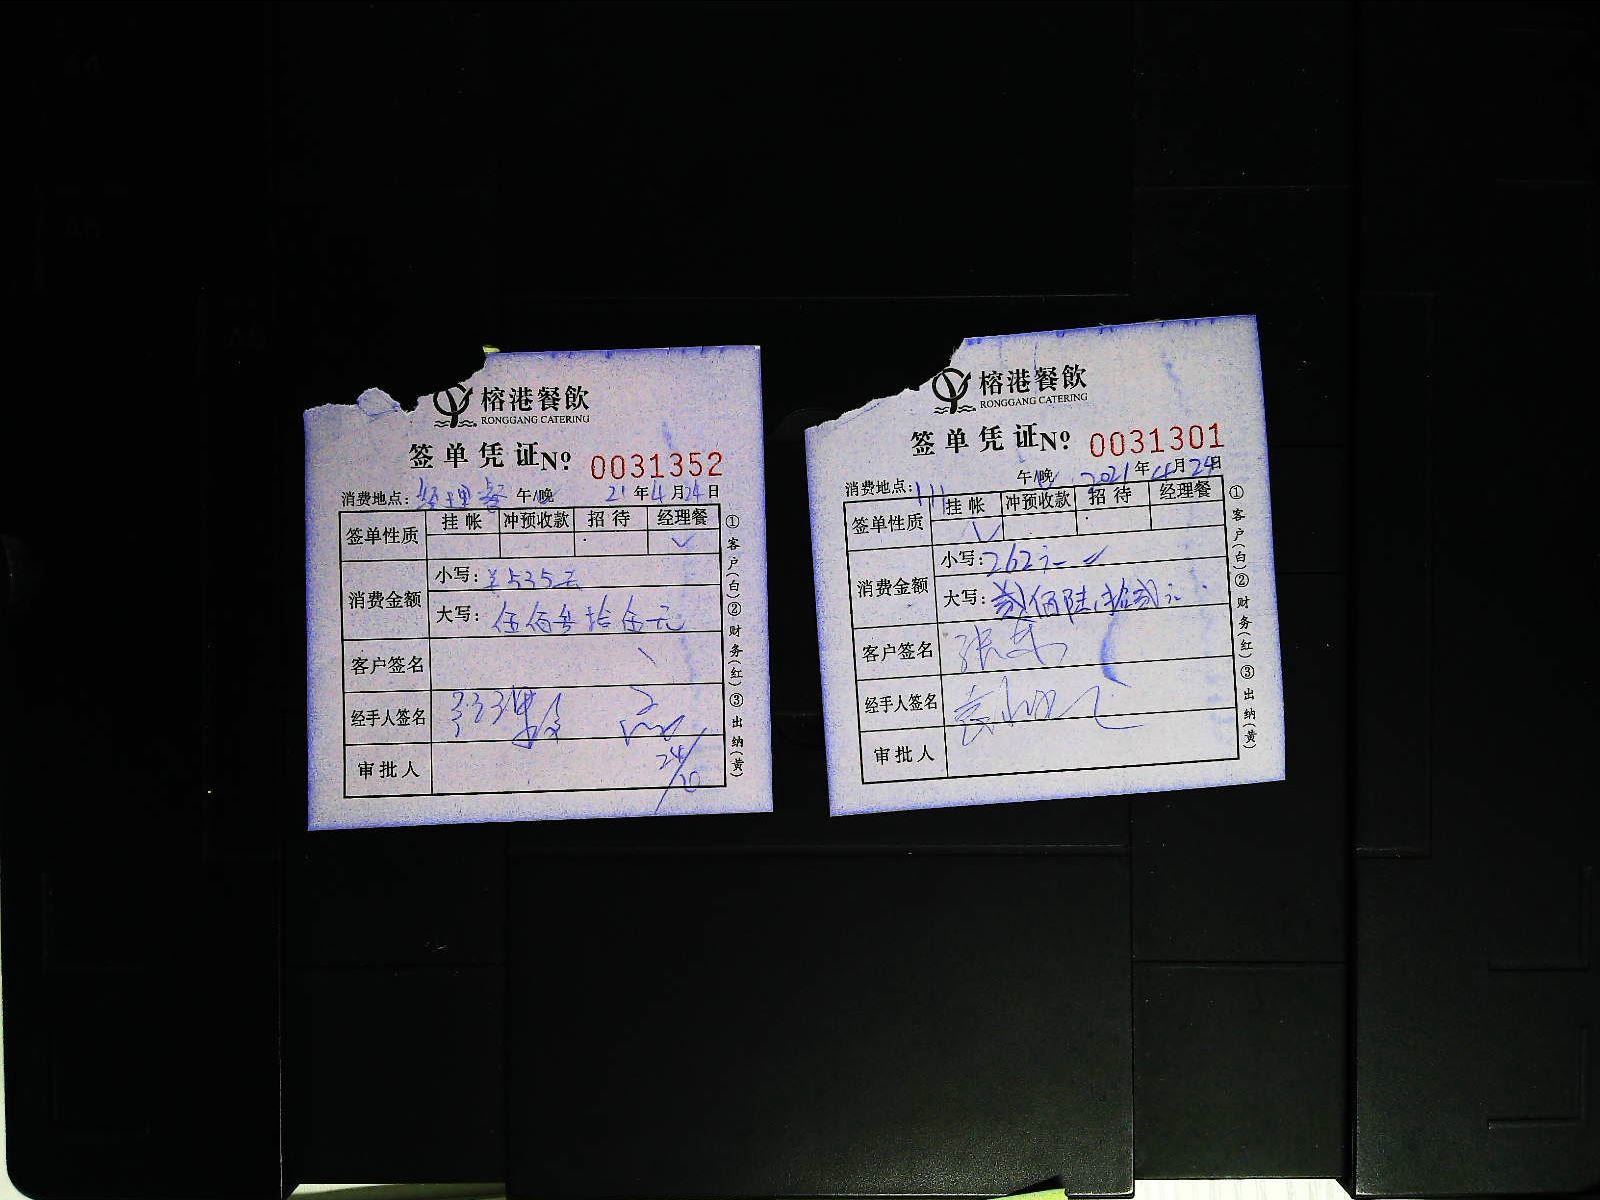 榕港餐飲
RONGGANG CATERING
签单凭证 Nº 0031352
消费地点: 经理餐 午/晚 21年4月24日
签单性质 挂帐 冲预收款 招待 经理餐
✓
消费金额
小写: ¥535元
大写: 伍佰叁拾伍元
客户签名
经手人签名
审批人
24/10
①客户(白)②财务(红)③出纳(黄)
榕港餐飲
RONGGANG CATERING
签单凭证 Nº 0031301
消费地点: 111 午/晚 2021年4月24日
签单性质 挂帐 冲预收款 招待 经理餐
✓
消费金额
小写: 262元
大写: 贰佰陆拾贰元
客户签名
经手人签名
审批人
①客户(白)②财务(红)③出纳(黄)